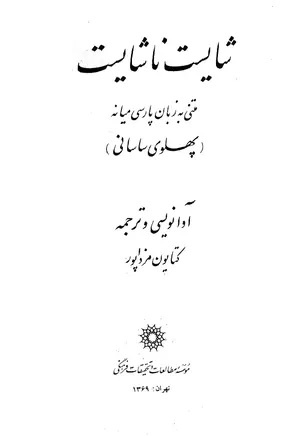 شایست ناشایست
متنی به زبان پارسی میانه
(پهلوی ساسانی)
آوانویسی و ترجمه
کتایون مزداپور
مؤسسه مطالعات و تحقیقات فرهنگی
تهران: ۱۳۶۹